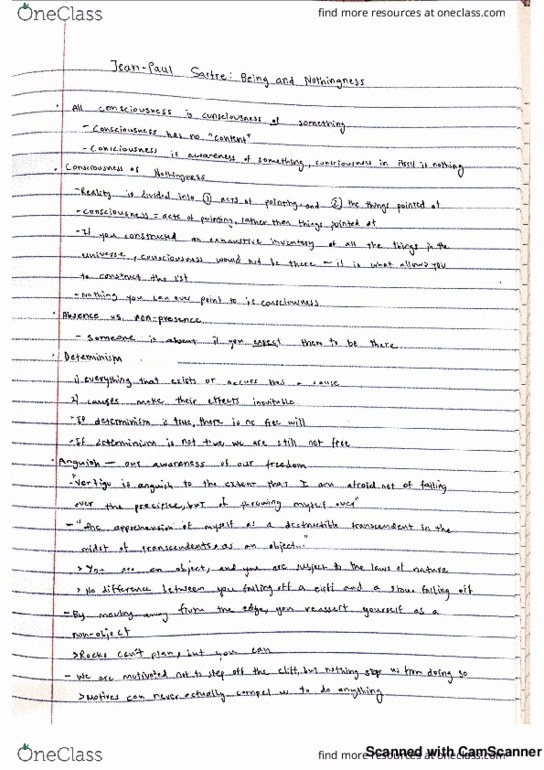 OneClass
find more resources at oneclass.com
Jean-Paul Sartre: Being and Nothingness
· All consciousness is consciousness of something
- Consciousness has no "content"
- Consciousness is awareness of something, consciousness in itself is nothing
· Consciousness as Nothingness
- Reality is divided into ① acts of pointing, and ② the things pointed at
- consciousness = acts of pointing, rather than things pointed at
- If you constructed an exhaustive inventory of all the things in the
universe, consciousness would not be there — it is what allows you
to construct the list
- Nothing you can ever point to is consciousness
· Absence vs. non-presence
- Someone is absent if you expect them to be there
· Determinism
1) everything that exists or occurs has a cause
2) causes make their effects inevitable
- If determinism is true, there is no free will
- If determinism is not true, we are still not free
· Anguish — our awareness of our freedom
- "Vertigo is anguish to the extent that I am afraid not of falling
over the precipice, but of throwing myself over"
- "The apprehension of myself as a destructible transcendent in the
midst of transcendents, as an object..."
> You are an object, and you are subject to the laws of nature
> No difference between you falling off a cliff and a stone falling off
- By moving away from the edge, you reassert yourself as a
non-object
> Rocks can't plan, but you can
- We are motivated not to step off the cliff, but nothing stops us from doing so
> Motives can never actually compel us to do anything
OneClass
find more resources at oneclass.com
Scanned with CamScanner